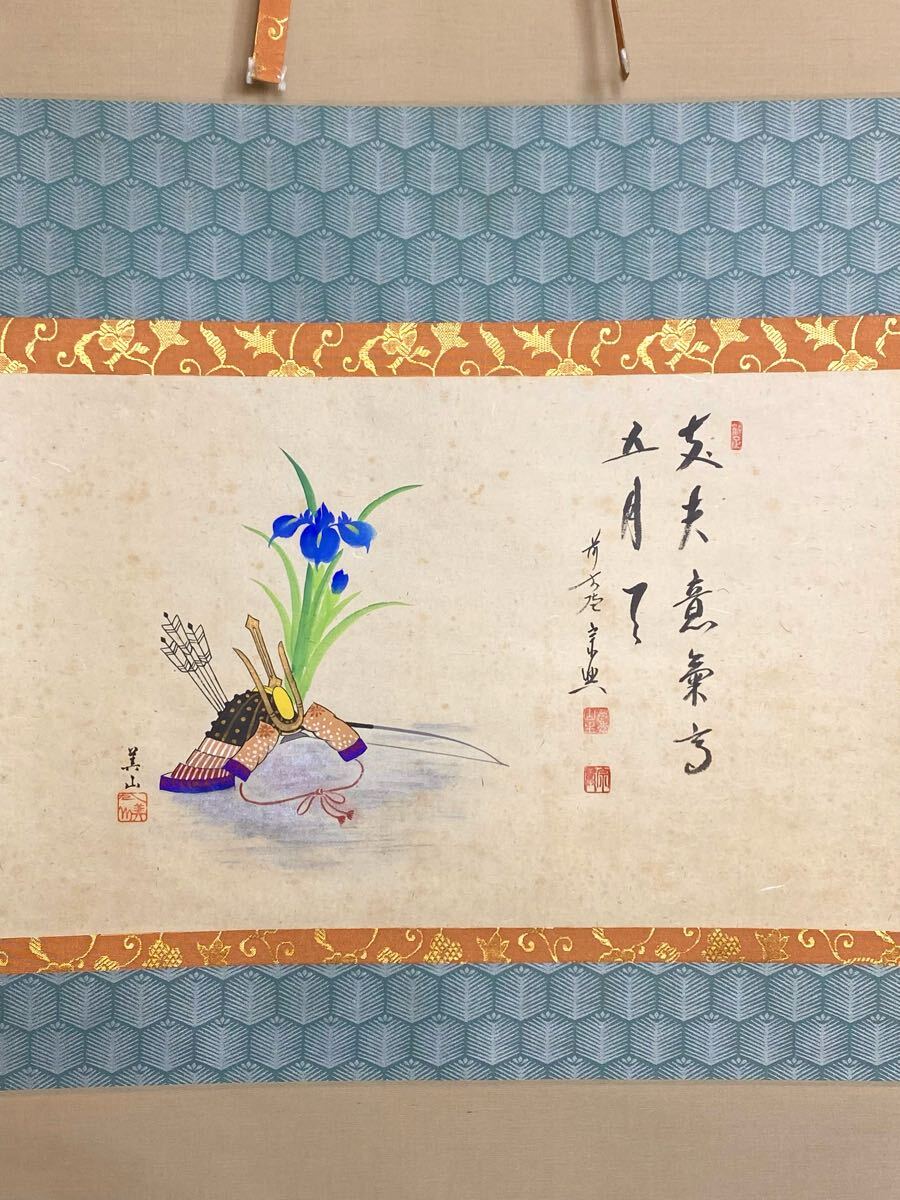 丈夫意氣高
五月天
前大德 宗興
美山